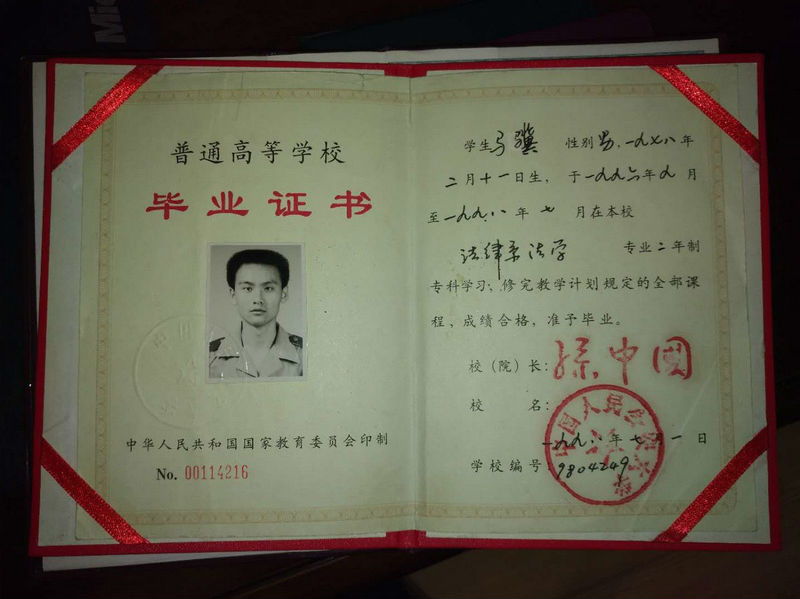 Mic
普通高等学校
毕业证书
中华人民共和国国家教育委员会印制
No. 00114216
学生马骥 性别男,一九七八年
二月十一日生,于一九九六年九月
至一九九八年七月在本校
法律系法学 专业二年制
专科学习,修完教学计划规定的全部课
程,成绩合格,准予毕业。
校(院)长:孙中国
校名:
中国人民
一九九八年七月一日
学校编号:9804249